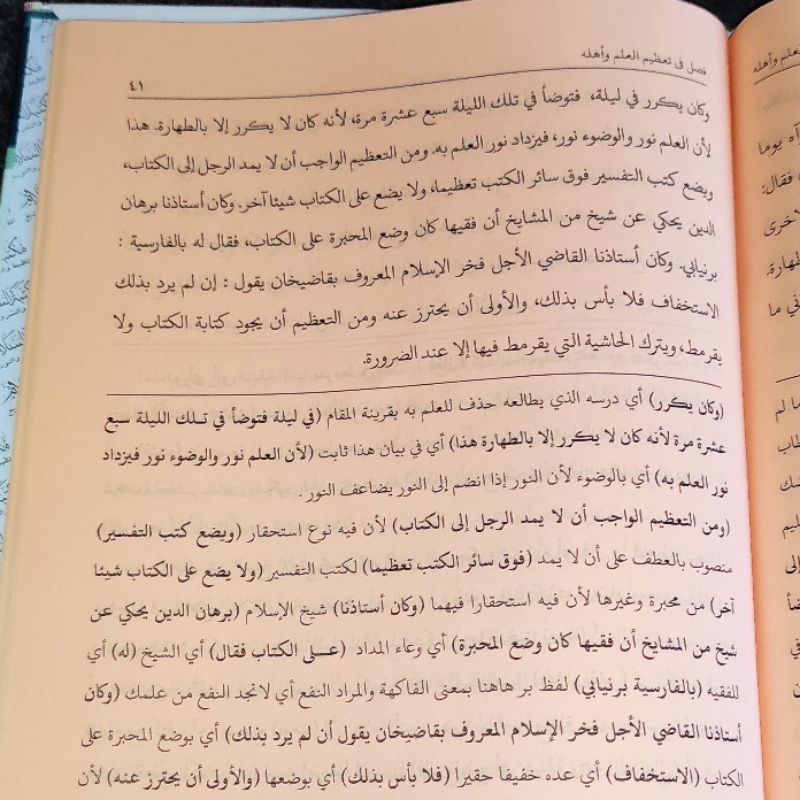 فصل فى تعظيم العلم وأهله
٤١
وكان يكرر في ليلة، فتوضأ في تلك الليلة سبع عشرة مرة، لأنه كان لا يكرر إلا بالطهارة. هذا
لأن العلم نور والوضوء نور، فيزداد نور العلم به. ومن التعظيم الواجب أن لا يمد الرجل إلى الكتاب،
ويضع كتب التفسير فوق سائر الكتب تعظيما، ولا يضع على الكتاب شيئا آخر. وكان أستاذنا برهان
الدين يحكي عن شيخ من المشايخ أن فقيها كان وضع المحبرة على الكتاب، فقال له بالفارسية :
برنيابي. وكان أستاذنا القاضي الأجل فخر الإسلام المعروف بقاضيخان يقول : إن لم يرد بذلك
الاستخفاف فلا بأس بذلك، والأولى أن يحترز عنه ومن التعظيم أن يجود كتابة الكتاب ولا
يقرمط، ويترك الحاشية التي يقرمط فيها إلا عند الضرورة.
(وكان يكرر) أي درسه الذي يطالعه حذف للعلم به بقرينة المقام (في ليلة فتوضأ في تلك الليلة سبع
عشرة مرة لأنه كان لا يكرر إلا بالطهارة هذا) أي في بيان هذا ثابت (لأن العلم نور والوضوء نور فيزداد
نور العلم به) أي بالوضوء لأن النور إذا انضم إلى النور يضاعف النور .
(ومن التعظيم الواجب أن لا يمد الرجل إلى الكتاب) لأن فيه نوع استحقار (ويضع كتب التفسير)
منصوب بالعطف على أن لا يمد (فوق سائر الكتب تعظيما) لكتب التفسير (ولا يضع على الكتاب شيئا
آخر) من محبرة وغيرها لأن فيه استحقارا فيهما (وكان أستاذنا) شيخ الإسلام (برهان الدين يحكي عن
شيخ من المشايخ أن فقيها كان وضع المحبرة) أي وعاء المداد (على الكتاب فقال) أي الشيخ (له) أي
للفقيه (بالفارسية برنيابي) لفظ بر هاهنا بمعنى الفاكهة والمراد النفع أي لاتجد النفع من علمك (وكان
أستاذنا القاضي الأجل فخر الإسلام المعروف بقاضيخان يقول أن لم يرد بذلك) أي بوضع المحبرة على
الكتاب (الاستخفاف) أي عده خفيفا حقيرا (فلا بأس بذلك) أي بوضعها (والأولى أن يحترز عنه) لأن